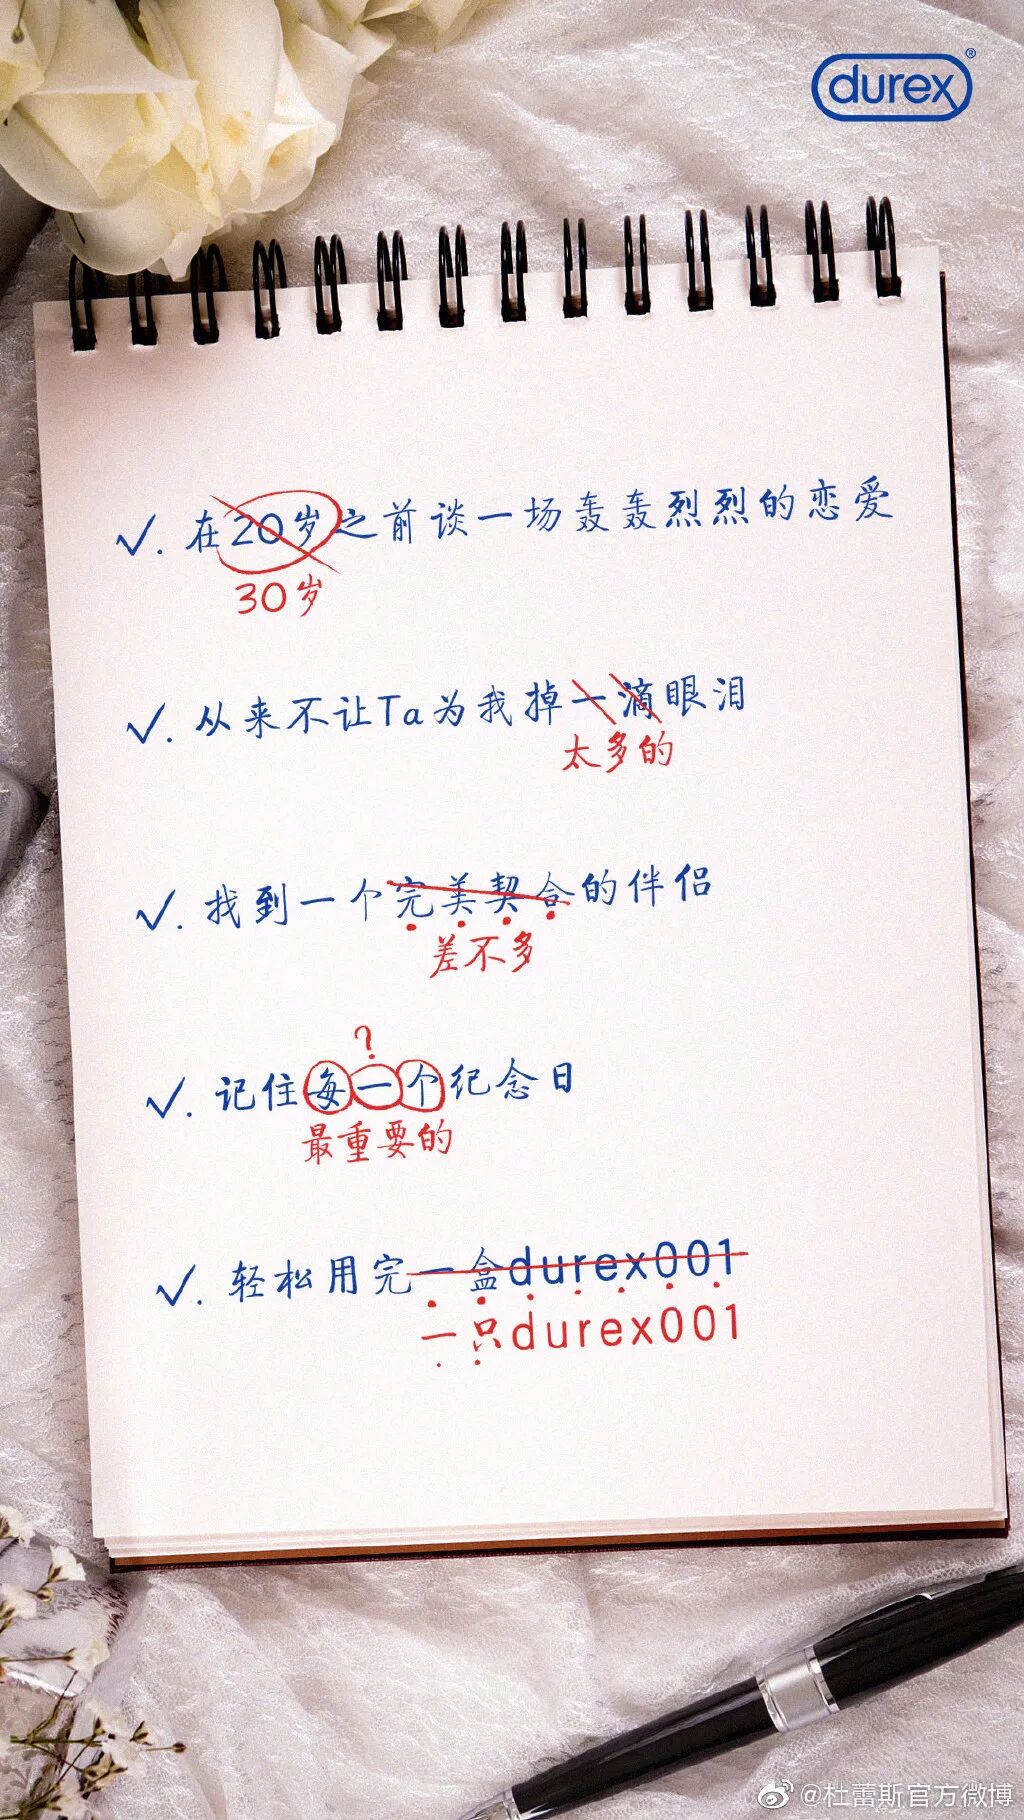 durex®
✓. 在20岁之前谈一场轰轰烈烈的恋爱
30岁
✓. 从来不让Ta为我掉一滴眼泪
太多的
✓. 找到一个完美契合的伴侣
差不多
?
✓. 记住每一个纪念日
最重要的
✓. 轻松用完一盒durex001
一只durex001
@杜蕾斯官方微博